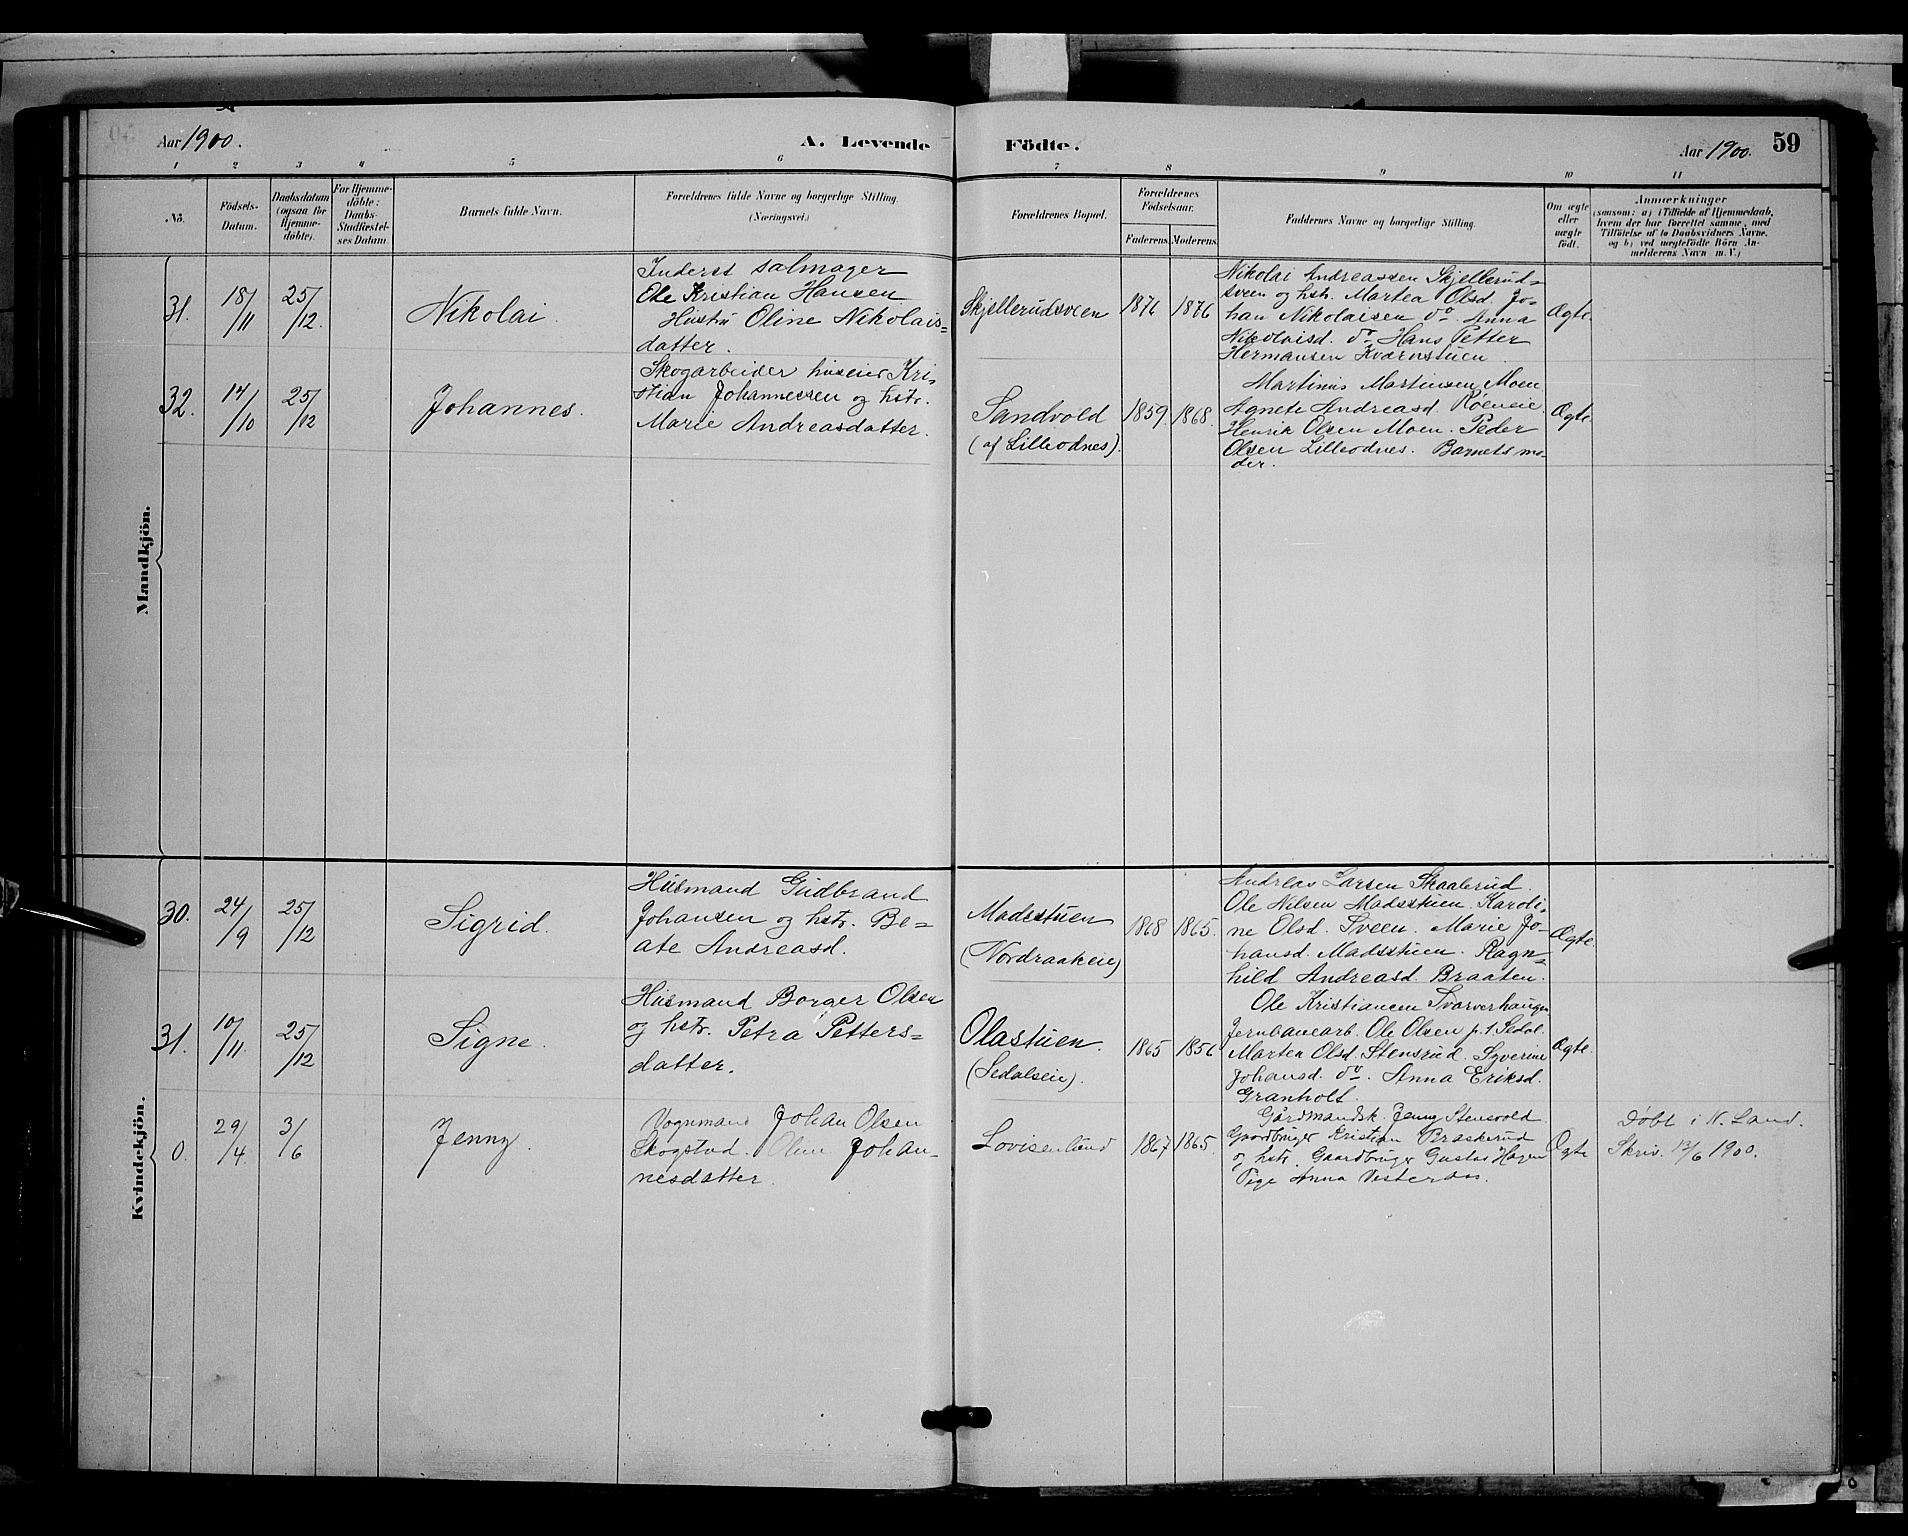 Aar 1900.
A. Levende Födte.
Aar 1900.
59
1 2 3 4 5 6 7 8 9 10 11
No.
Födsels-
Datum.
Daabsdatum
(ogsaa for
Hjemme-
döbte).
For Hjemme-
döbte:
Daabs-
Stadfæstel-
ses Datum.
Barnets fulde Navn.
Forældrenes fulde Navne og borgerlige Stilling.
(Næringsvei.)
Forældrenes Bopæl.
Forældrenes
Födselsaar.
Faderens.
Moderens.
Faddernes Navne og borgerlige Stilling.
Om ægte
eller
uægte
födt.
Anmærkninger
(saasom: a) i Tilfælde af Hjemmedaab,
hvem der har forrettet samme, med
Tilföielse af to Daabsvidners Navne.
og b) ved uægtefödte Börn An-
melderens Navn m. V.)
Mandkjön.
31.
18/11
25/12.
Nikolai.
Inderst salmager
Ole Kristian Hansen
Hustru Oline Nikolais=
datter.
Skjellerudsveen
1874
1876
Nikolai Andreassen Skjellerud=
sveen og hstr. Martea Olsd. Jo-
han Nikolaisen do. Anna
Nikolaisd. do Hans Petter
Hermansen Kværnstuen.
Ægte
32.
14/10
25/12
Johannes.
Skogarbeider huseier Kri-
stian Johannessen og hstr.
Marie Andreasdatter.
Sandvold
(af Lilleodnes).
1859.
1868.
Martinus Martinsen Moen
Agnete Andreasd. Röeneie
Henrik Olsen Moen. Peder
Olsen Lilleodnes. Barnets mo-
der.
Ægte.
Kvindekjön.
30.
24/9
25/12
Sigrid.
Husmand Gudbrand
Johansen og hstr. Be=
ate Andreasd.
Madsstuen
(Nordraakeie)
1868
1865.
Andreas Larsen Skaalerud.
Ole Nilsen Madsstuen. Karoli-
ne Olsd. Sveen. Marie Jo-
hansd. Madsstuen. Ragn=
hild Andreasd. Braaten.
Ægte.
31.
10/11
25/12
Signe.
Husmand Borger Olsen
og hstr. Petra Petters=
datter.
Olastuen.
(Sedalseie).
1865
1856
Ole Kristiansen Svarverhaugen
Jernbanearb. Ole Olsen p.t. Sedal.
Martea Olsd. Stensrud. Syverine
Johansd. do. Anna Eriksd.
Granholt.
Ægte.
0.
29/4
3/6
Jenny.
Vognmand Johan Olsen
Skogstad. Oline Johan-
nesdatter.
Lovisenlund
1867
1865.
Gårdmandsk. Jenny Stensvold
Gaardbruger Kristian Braskerud
og hstr. Gaardbruger Gustav Hagen
Pige Anna Vesteraas.
Ægte
Døbt i N. Land.
Skriv. 13/6 1900.